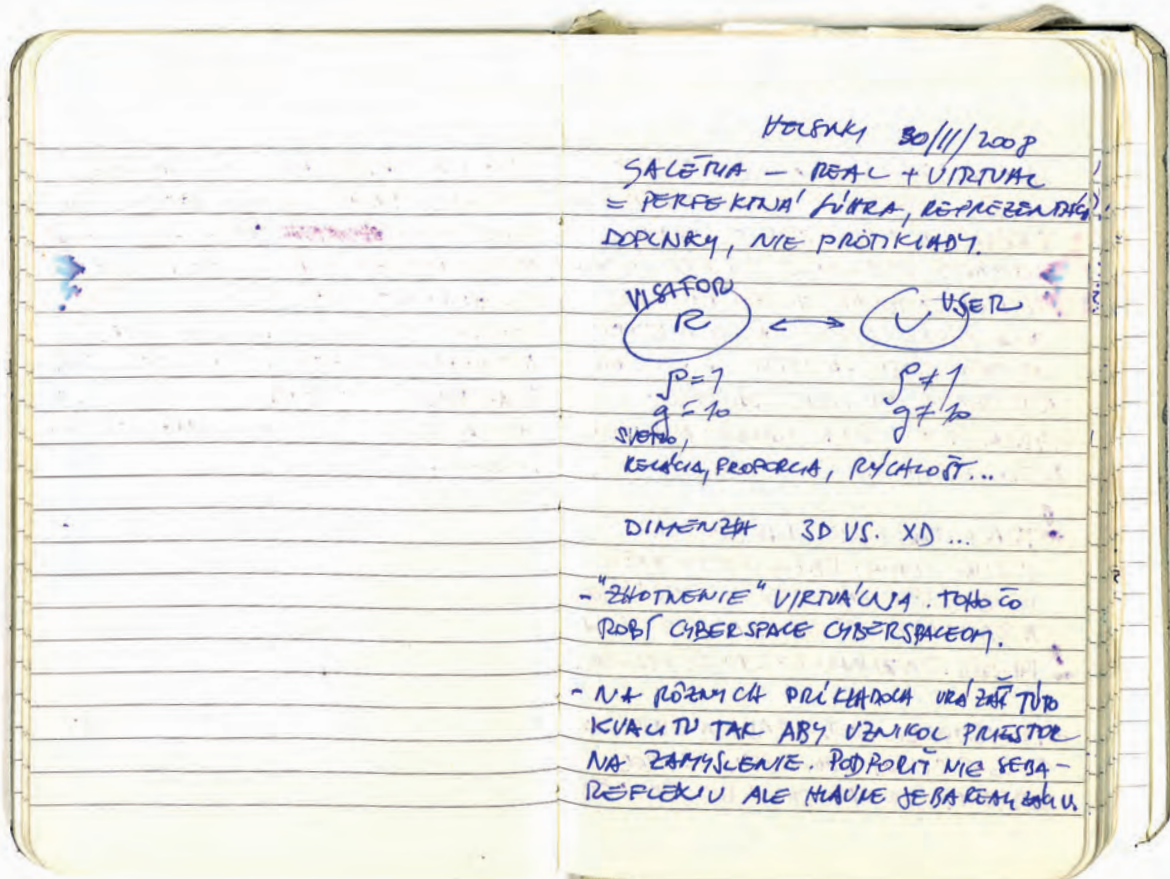 HELSINKI 30/11/2008
GALÉRIA — REAL + VIRTUAL
= PERFEKTNÁ SÚHRA, REPREZENTÁCIA
DOPLNKY, NIE PROTIKLADY.
VISITOR USER
R ↔ V
ρ=1 ρ≠1
g=10 g≠10
SVETLO,
RELÁCIA, PROPORCIA, RÝCHLOSŤ...
DIMENZIA 3D VS. XD ...
- "ZHOTNENIE" VIRTUÁLNIA. TOHO ČO
ROBÍ CYBERSPACE CYBERSPACEOM.
- NA RÔZNYCH PRÍKLADOCH UKÁZAŤ TÚTO
KVALITU TAK ABY VZNIKOL PRIESTOR
NA ZAMYSLENIE. PODPORIŤ NIE SEBA-
REFLEXIU ALE HLAVNE SEBAREALIZÁCIU.